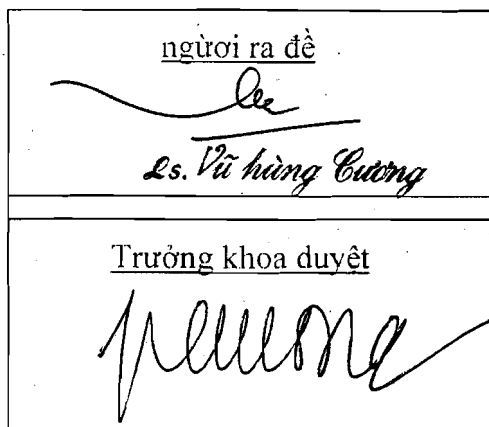 người ra đề
Ls. Vũ hùng Cương
Trưởng khoa duyệt